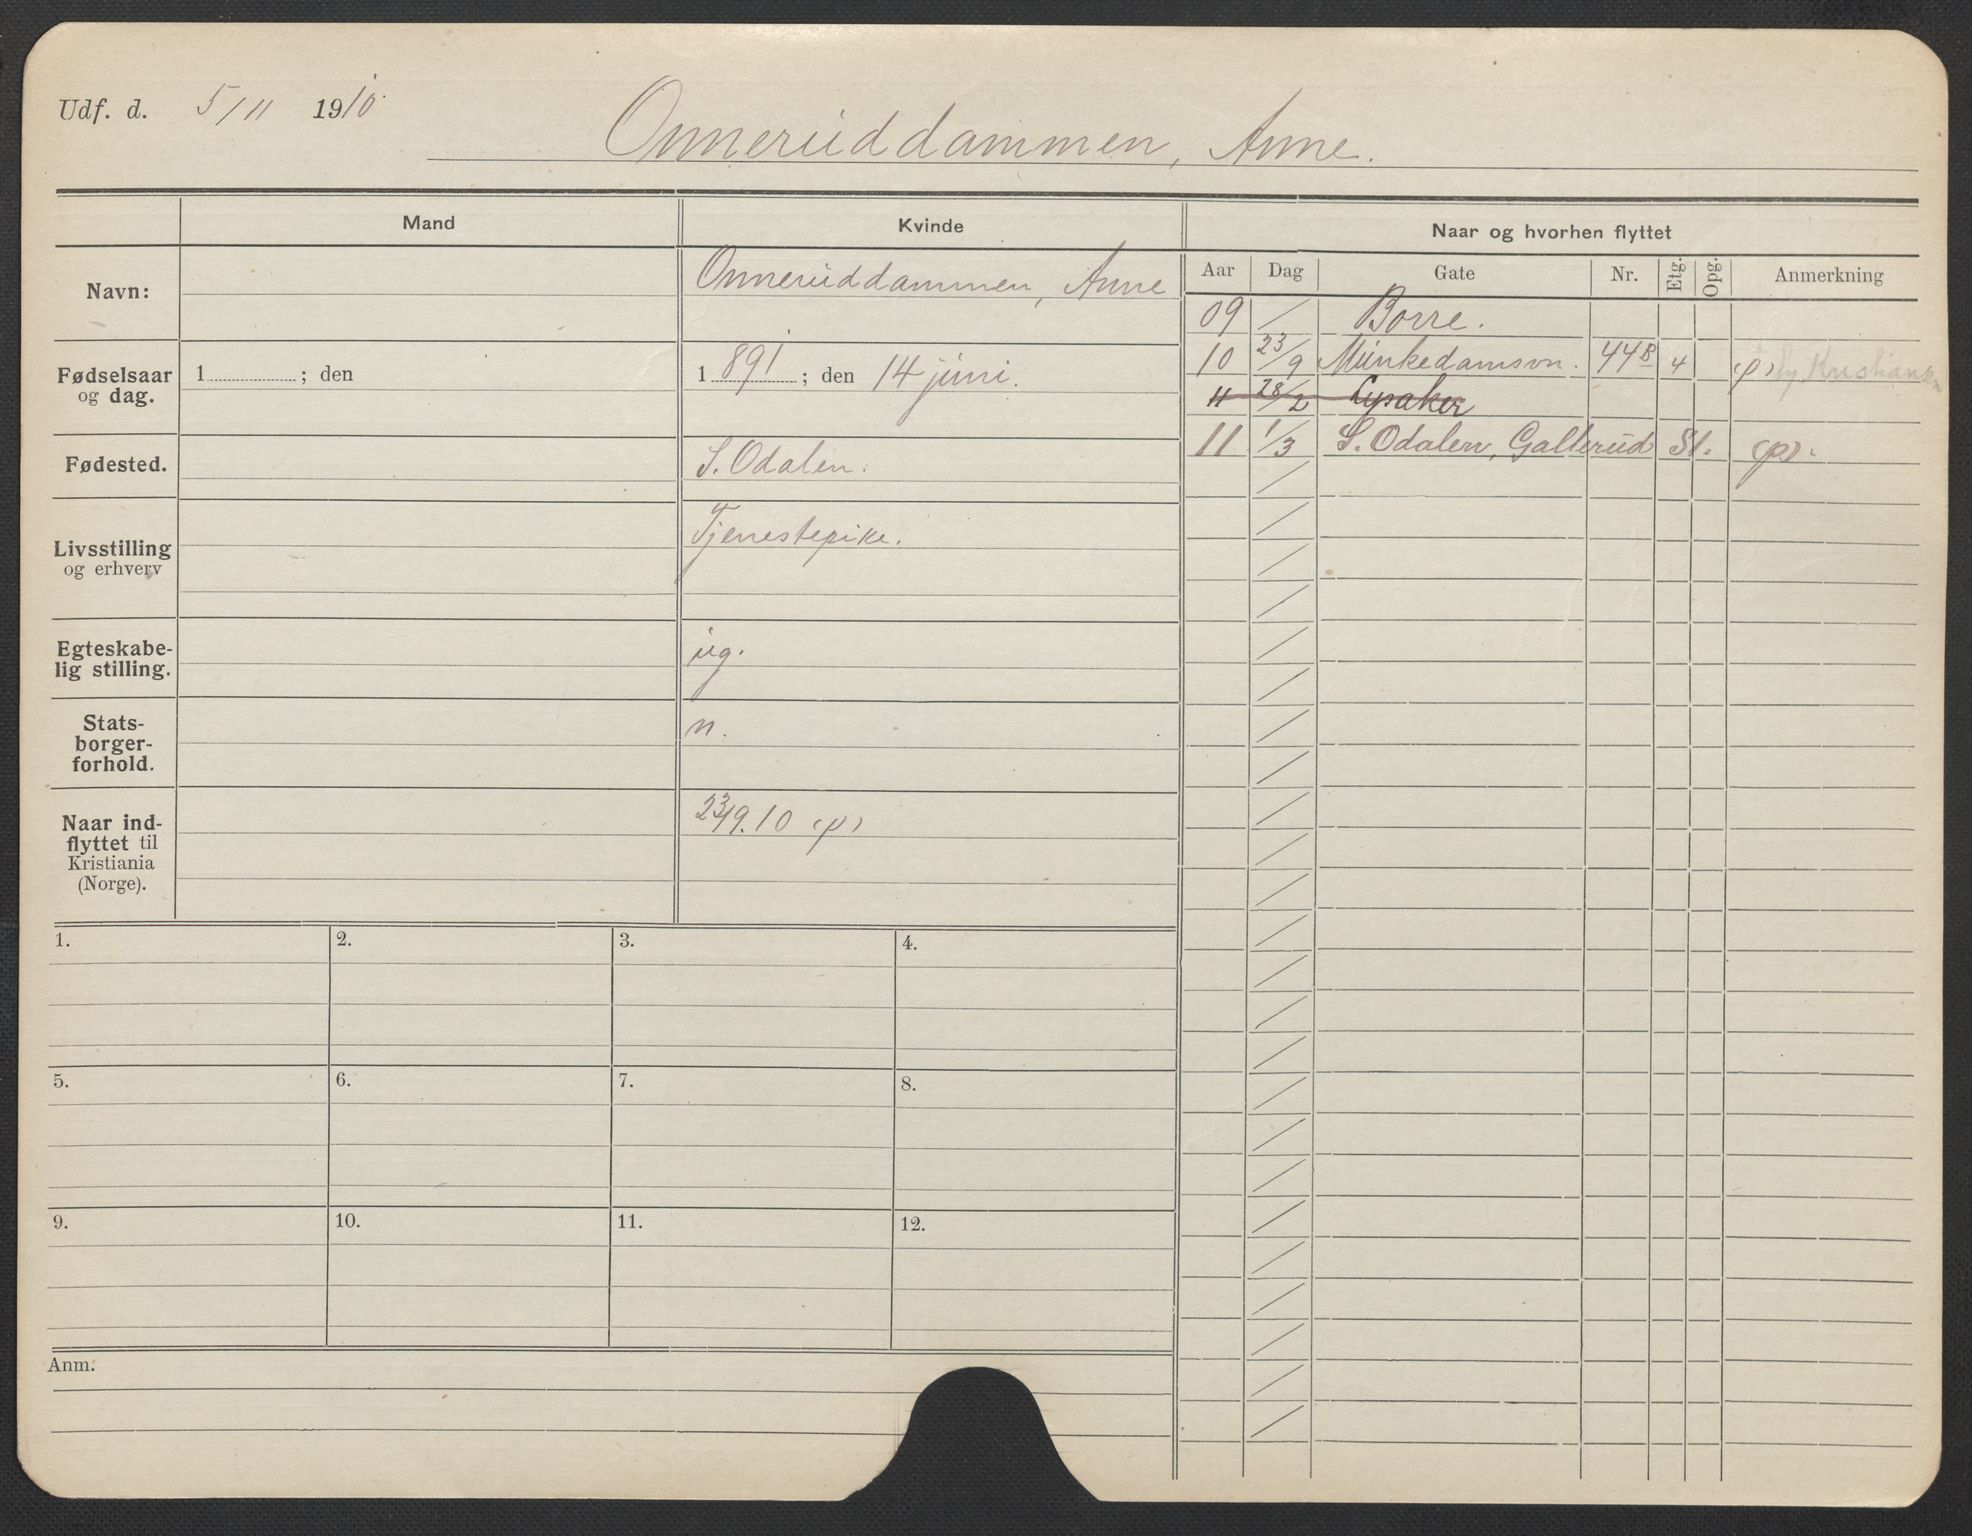 Udf. d. 5/11 1910
Onneruddammen, Anne.
Mand Kvinde Naar og hvorhen flyttet
Navn: Onneruddammen, Anne
Fødselsaar og dag. 1 ; den 1 891 ; den 14 juni.
Fødested. S. Odalen.
Livsstilling og erhverv Tjenestepike.
Egteskabelig stilling. ug.
Statsborgerforhold. n.
Naar indflyttet til Kristiania (Norge). 23/9.10 (p)
Aar Dag Gate Nr. Etg. Opg. Anmerkning
09 / Borre.
10 23/9 Munkedamsvn. 44B 4 (p)
11 28/2 Lysaker
11 1/3 S. Odalen, Gallerud St. (p).
1. 2. 3. 4.
5. 6. 7. 8.
9. 10. 11. 12.
Anm.